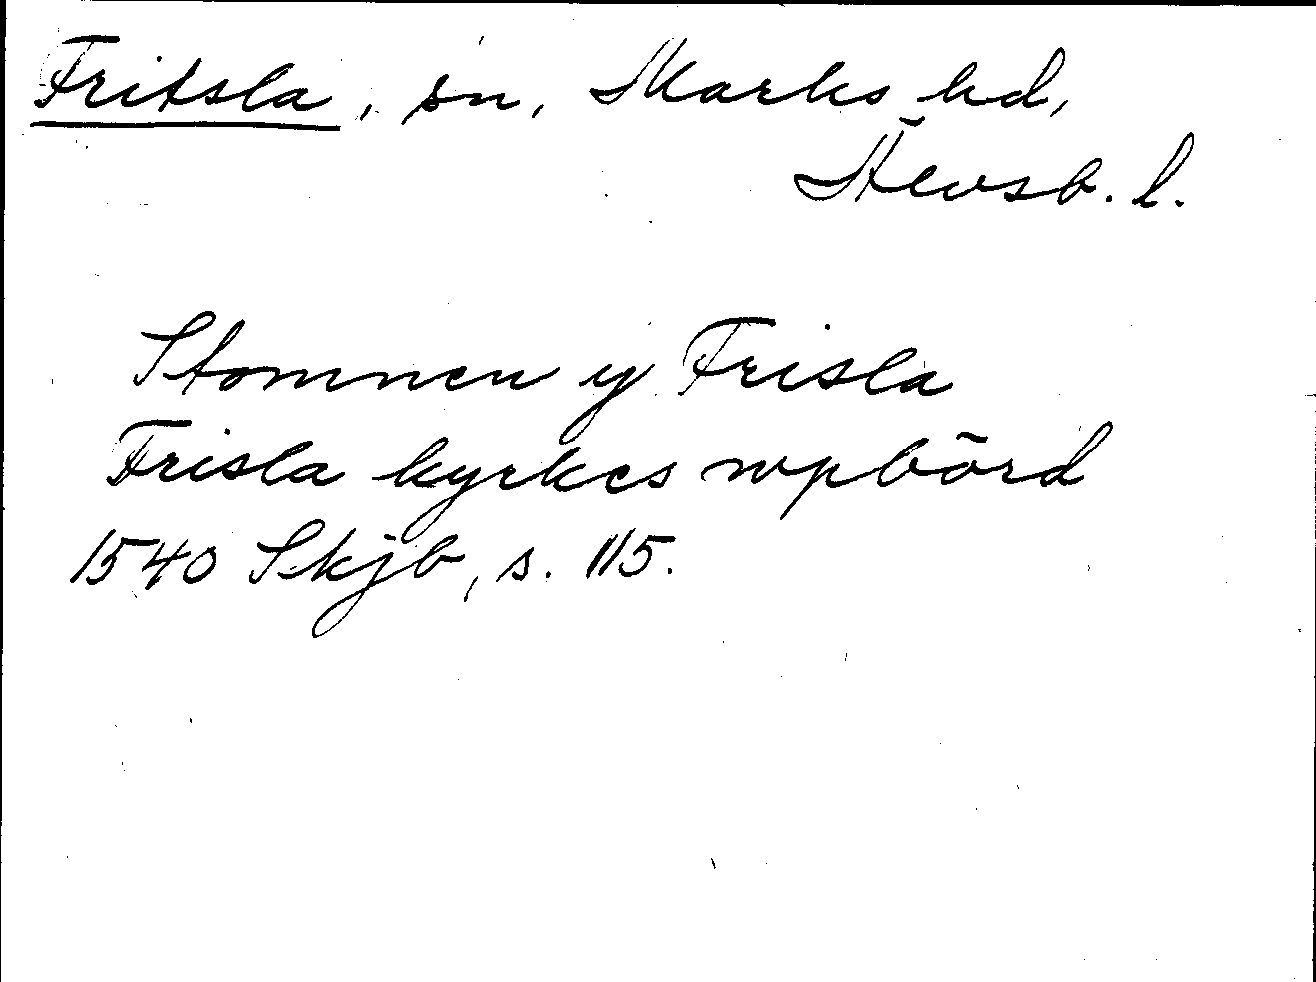 Fritsla, sn, Marks hd,
Älvsb. l.
Stomnen y Frisla
Frisla kyrkes wpbörd
1540 Skjb, s. 115.